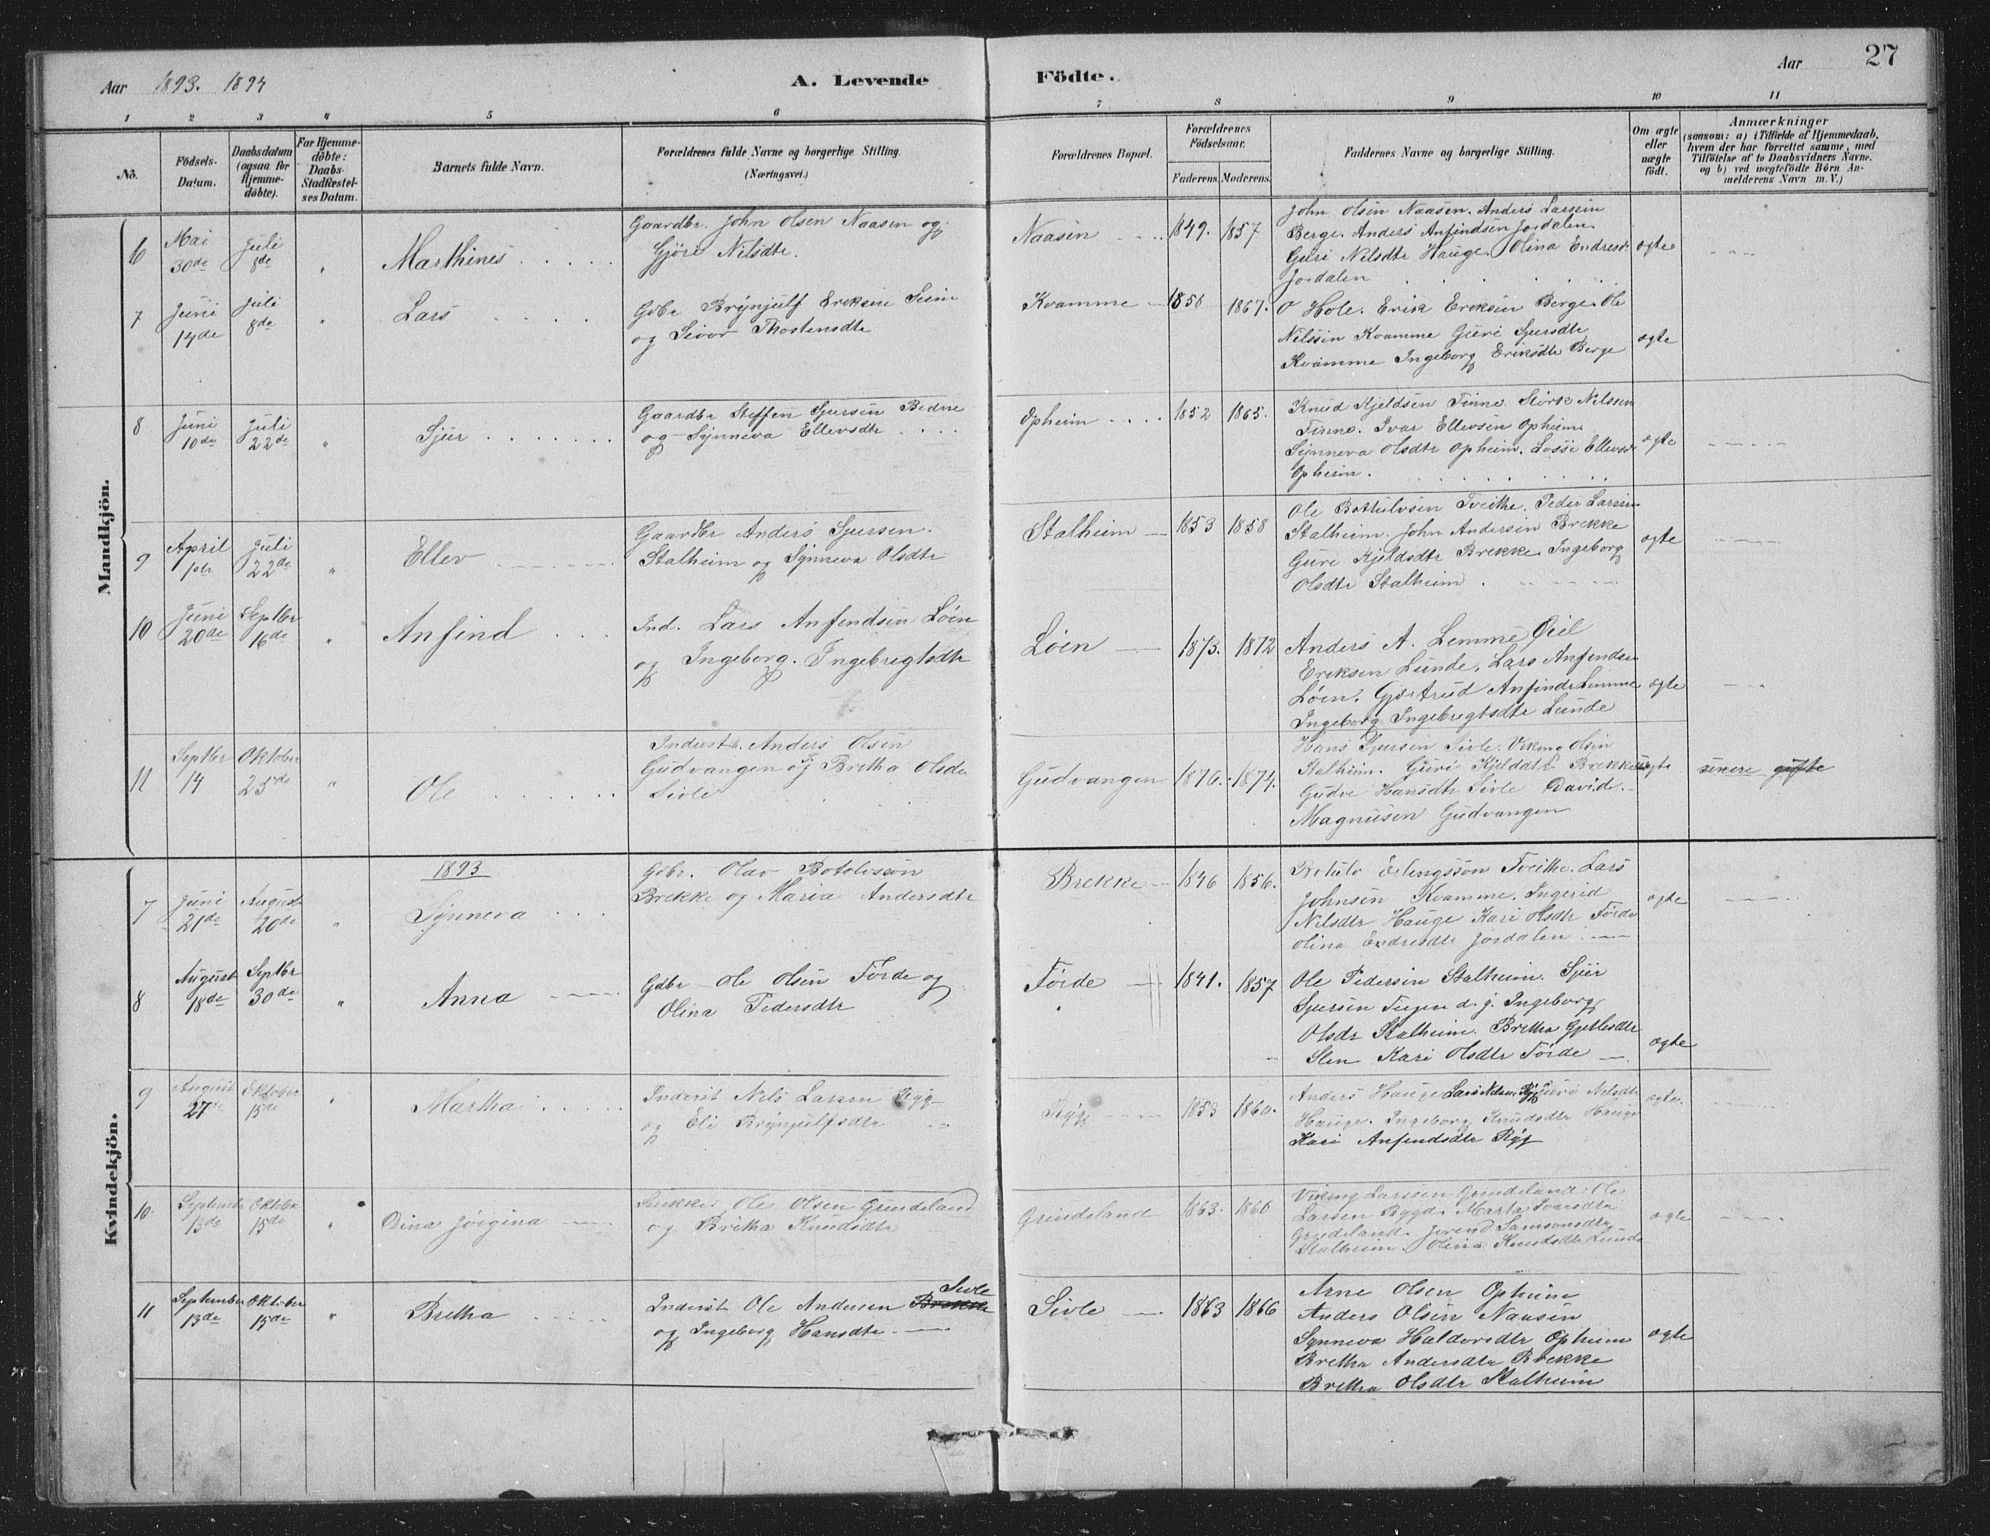 Aar 1893. 1894
A. Levende Födte.
Aar 27
1 2 3 4 5 6 7 8 9 10 11
No.
Födsels-Datum.
Daabsdatum (ogsaa for Hjemmedöbte).
For Hjemmedöbte: Daabs-Stadfæstelses Datum.
Barnets fulde Navn.
Forældrenes fulde Navne og borgerlige Stilling. (Næringsvei.)
Forældrenes Bopæl.
Forældrenes Födselsaar. Faderens. Moderens.
Faddernes Navne og borgerlige Stilling.
Om ægte eller uægte födt.
Anmærkninger
(saasom: a) i Tilfælde af Hjemmedaab,
hvem der har forrettet samme, med
Tilföielse af to Daabsvidners Navne.
og b) ved uægtefödte Börn Anmelderens Navn m. V.)
Mandkjön.
6 Mai 30de Juli 8de " Marthines
Gaardbr. John Olsen Naasen og
Gjöri Nilsdtr.
Naasen 1849. 1857
John Olsen Naasen. Anders Larsen
Berge. Anders Anfindsen Jordalen
Guri Nilsdtr Hauge. Olina Endresd.
Jordalen
ægte
7 Juni 14de Juli 8de " Lars
Gdbr Brynjulf Eriksen Seim
og Sivor Thostensdtr
Kvamme 1856 1867.
O Hole. Erik Eriksen Berge. Ole
Nilssen Kvamme Guri Sjursdtr
Kvamme Ingeborg Eriksdtr Berge
ægte
8 Juni 10de Juli 22de " Sjur
Gaardbr Steffen Sjursen
og Synneva Ellevsdtr
Opheim 1852 1865.
Knud Kjeldsen Tinne. Nilssen
Tinne. Ivar Ellevsen Opheim
Synneva Olsdtr Opheim. Ellevsd.
Opheim.
ægte
9 April 1ste Juli 22de " Ellev
Gaardbr Anders Sjursen
Stalheim og Synneva Olsdtr
Stalheim 1853 1858
Ole Bottulvsen Tveithe. Peder Larsen
Stalheim. John Andersen Brekke
Guri Kjeldsdtr Brekke Ingeborg
Olsdtr Stalheim.
ægte
10 Juni 20de Septbr 16de " Anfind
Ind. Lars Anfindsen Löen
og Ingeborg Ingebregtsdtr
Löen 1873. 1872
Anders A. Lemme
Eriksen Lunde. Lars Anfindsen
Löen. Gjertrud Anfindsd Lemme
Ingeborg Ingebregtsdtr Lunde
ægte
11 Septbr 14 Oktober 25de " Ole
Inderst. Anders Olsen
Gudvangen og Bretha Olsdtr
Sivle
Gudvangen 1870. 1874.
Hans Sjursen Sivle. Viking Olsen
Stalheim. Guri Kjeldsdtr Brekke
Gudve Hansdtr Sivle David
Magnusen Gudvangen
uægte
senere gifte
Kvindekjön.
1893
7 Juni 21de August 20de " Synneva
Gdbr. Olav Botolvsson
Brekke og Maria Andersdtr
Brekke 1846 1856.
Botulv Erlingsson Tveithe. Lars
Johnsen Kvamme. Ingerid
Nilsdtr Hauge Kari Olsdtr Förde
Olina Endresdtr Jordalen
ægte
8 August 18de Septbr 30de " Anna
Gdbr Ole Olsen Förde og
Olina Pedersdtr
Förde 1841. 1857
Ole Pedersen Stalheim. Sjur
Sjursen d. y. Ingeborg
Olsdtr Stalheim. Bretha
Kari Olsdtr Förde
ægte
9 August 27de Oktober 15de " Martha
Inderst Nils Larsen Ryg
og Eli Brynjulfsdtr
Ryg 1853 1860.
Anders Hauge Lars Nilsen Ryg Guri Nilsdtr
Hauge. Ingeborg Knudsdtr Hauge
Kari Anfindsdtr Ryg
ægte
10 Septembr 13de Oktober 15de " Dina Jörgina
Ole Olsen Grindeland
og Bretha Knudsdtr
Grindeland 1863. 1860
Viking Larssen Grindeland Ole
Larsen Bygd. Marta Ivarsdtr
Grindeland. Samsonsdtr
Stalheim. Olina Knudsdtr Lunde
ægte
11 September 13de Oktober 15de " Bretha
Inderst Ole Andersen Brekke Sivle
og Ingeborg Hansdtr
Sivle 1863 1866
Arne Olsen Opheim
Anders Olsen Naasen
Synneva Haldorsdtr Opheim
Bretha Andersdtr Brekke
Bretha Olsdtr Stalheim
ægte